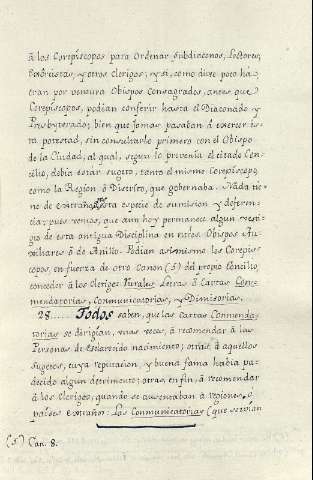 á los Corepíscopos para Ordenar Subdiaconos, Lectores,
Exôrcistas, y otros Clerigos; y si, como dixe poco ha,
eran por ventura Obispos Consagrados, antes que
Corepíscopos, podian conferir hasta el Diaconado y
Presbyterado; bien que jamas pasaban á exercer es-
ta potestad, sin consultarlo primero con el Obispo
de la Ciudad, al qual, segun lo prevenia el citado Con-
cilio, debia estar sugeto, tanto el mismo Corepíscopo,
como la Region ó Distrito, que gobernaba. Nada tie-
ne de extraño esta especie de sumision y deferen-
cia; pues vemos, que aun hoy permanece algun vesti-
gio de esta antigua Disciplina en los Obispos Au-
xîliares ó de Anillo. Podian asimismo los Corepís-
copos, en fuerza de otro Canon (5) del propio Concilio,
conceder á los Clerigos Rurales Letras ó Cartas Com-
mendatorias, Communicatorias, y Dimisorias.
28..... Todos saben, que las Cartas Commenda-
torias se dirigian, unas veces, á recomendar á las
Personas de esclarecido nacimiento; otras á aquellos
Sugetos, cuya reputacion, y buena fama habia pa-
decido algun detrimento; otras en fin, á recomendar
á los Clerigos, quando se ausentaban á regiones, ó
países extraños: Las Communicatorias (que servian
(5) Can. 8.